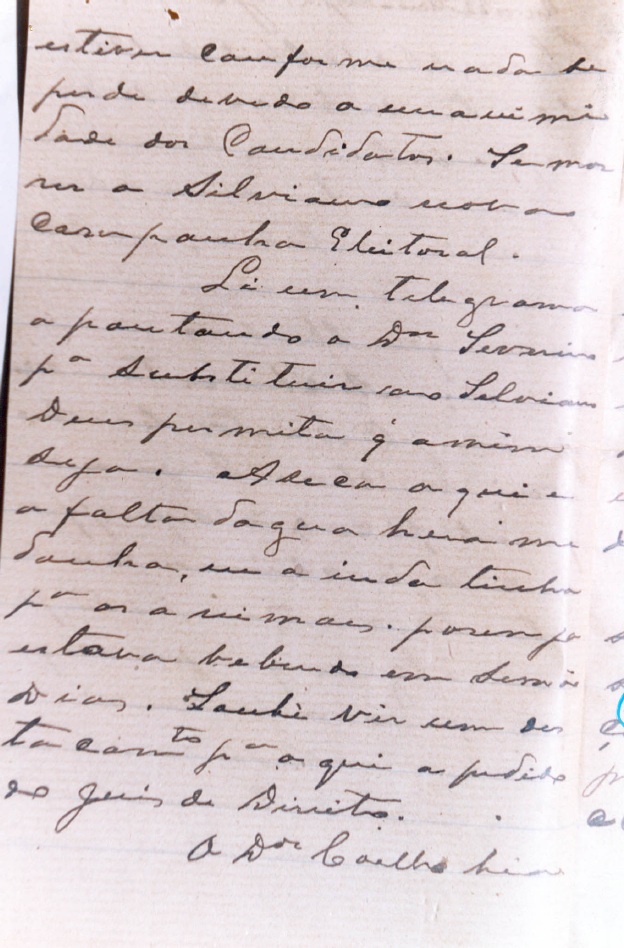 estiver conforme nada se
perde devido a unanimi
dade dos Candidatos. Se mor
rer o Silviano nova
campanha Eleitoral.
Li um telegrama
apontando o Dor
pa substituir ao Silviano
Deus permita q̃ assim
seja. A seca aqui e
a falta dagua
ainda tinha
pa os animaes. porem ja
estava bebendo em
Dias. Soube vir um des
tacamto pa aqui a pedido
do Juis de Direito.
O Dor Coelho